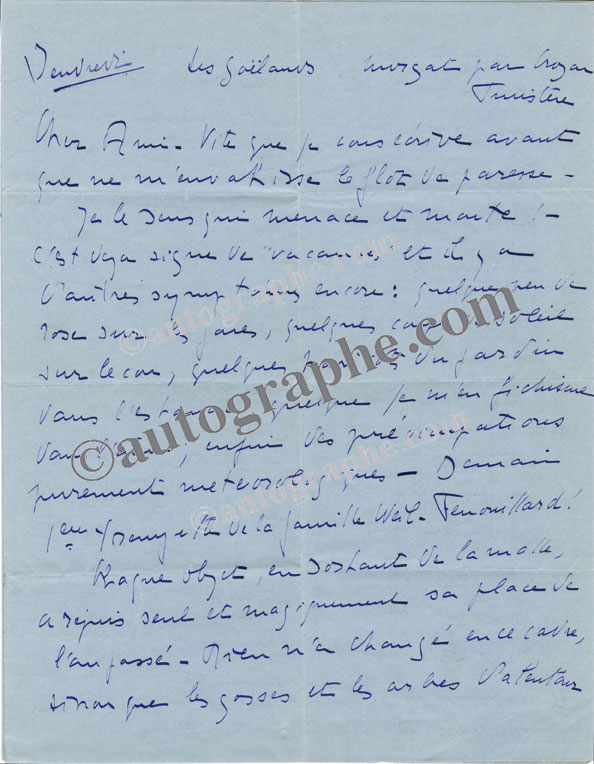 Vendredi Les Goëlands Morgat par Crozon
Finistère
Cher Ami - Vite que je vous écrive avant
que ne m'envahisse le flot de paresse -
Je le sens qui menace et monte ! -
C'est déjà signe de "vacances" et il y a
d'autres symptômes encore : quelque peu de
rose sur les joues, quelques coups de soleil
sur le cou, quelques haricots du jardin
dans l'estomac, quelque je m'en fichisme
dans l'âme, enfin des préoccupations
purement météorologiques - Demain
1ere de la famille Weil-Fenouillard !
Chaque objet, en sortant de la malle,
a repris seul et magiquement sa place de
l'an passé - Rien n'a changé en ce cadre,
sinon que les gosses et les arbres d'alentour
©autographe.com
©autographe.com
©autographe.com